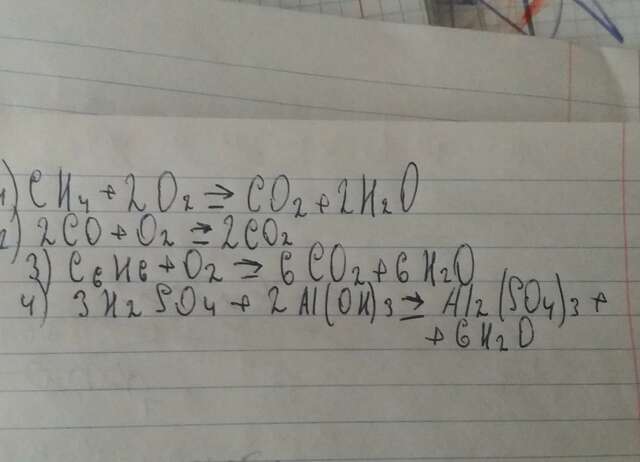 1) CH₄ + 2O₂ ⇒ CO₂ + 2H₂O
2) 2CO + O₂ ⇒ 2CO₂
3) C₆H₆ + O₂ ⇒ 6CO₂ + 6H₂O
4) 3H₂SO₄ + 2Al(OH)₃ ⇒ Al₂(SO₄)₃ +
+ 6H₂O